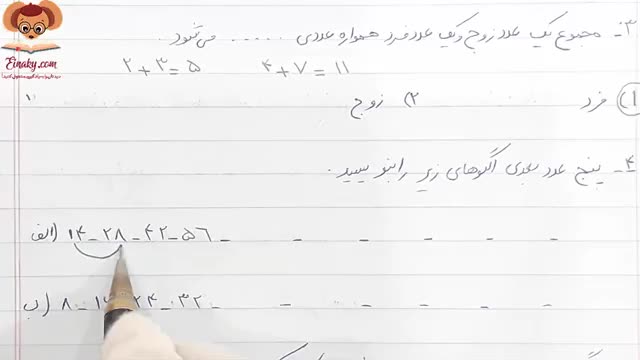 Einaky.com
۳- مجموع یک عدد زوج و یک عدد فرد همواره عددی ..... می‌شود.
۲+۳=۵ ۴+۷=۱۱
۱) فرد ۲) زوج
۴- پنج عدد بعدی الگوهای زیر را بنویسید.
الف) ۱۴-۲۸-۴۲-۵۶- - - - -
ب) ۸- ۲۴-۳۲- - - - -